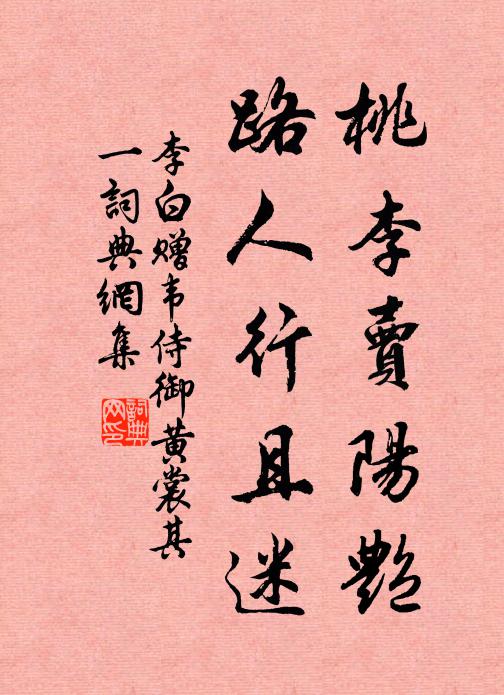 桃李賣陽艷
路人行且迷
李白赠韦侍御黄裳其
一詞典網集
詞典
网印